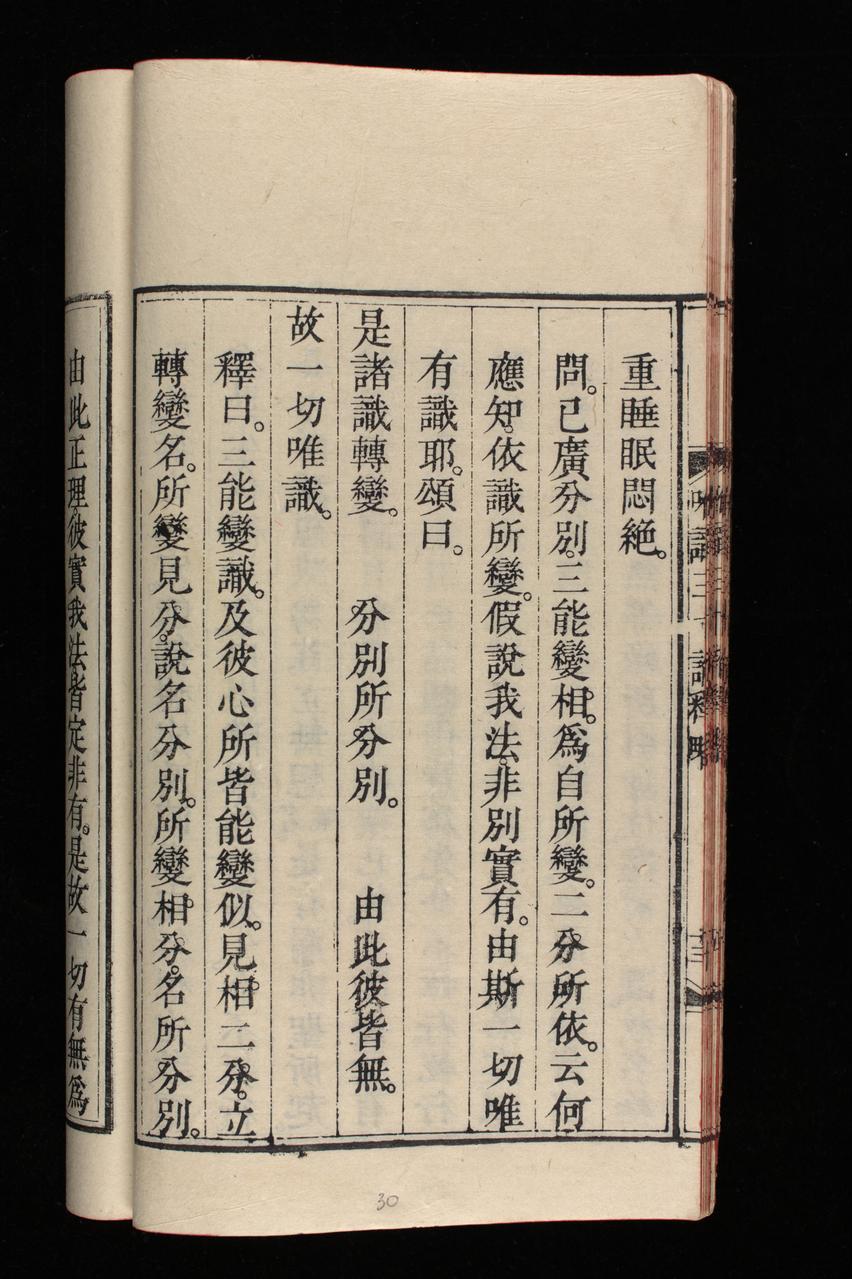 重睡眠悶絶。
問。已廣分別。三能變相。爲自所變。二分所依。云何
應知。依識所變。假說我法。非別實有。由斯一切唯
有識耶。頌曰。
是諸識轉變。 分別所分別。 由此彼皆無。
故一切唯識。
釋曰。三能變識。及彼心所皆能變似。見相二分。立
轉變名。所變見分。說名分別。所變相分。名所分別。
由此正理。彼實我法皆定非有。是故一切有無爲
30